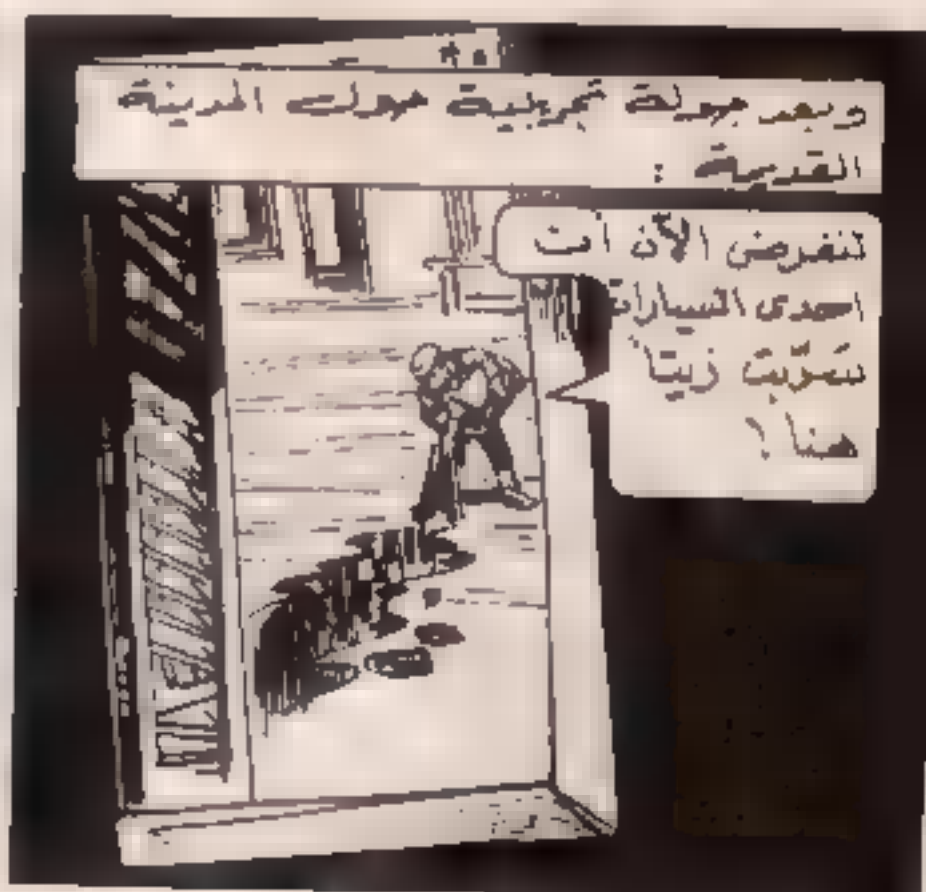 وبعد جولة تجريبية حول المدينة
القديمة :
لنفرض الآن ان
احدى السيارات
سَرّبت زيتاً
هنا !